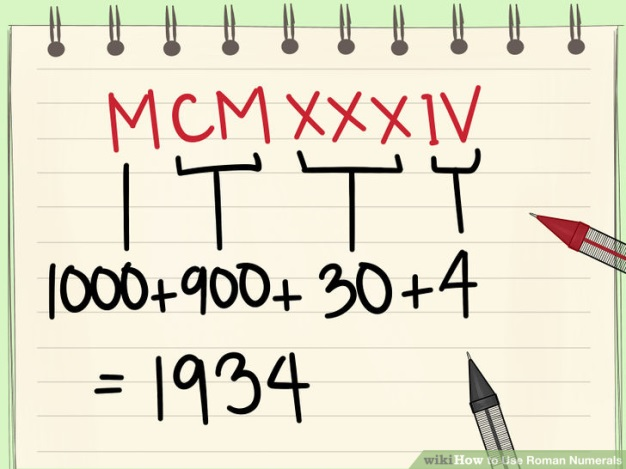 M CM XXX IV
1000+900+30+4
=1934
wikiHow to Use Roman Numerals